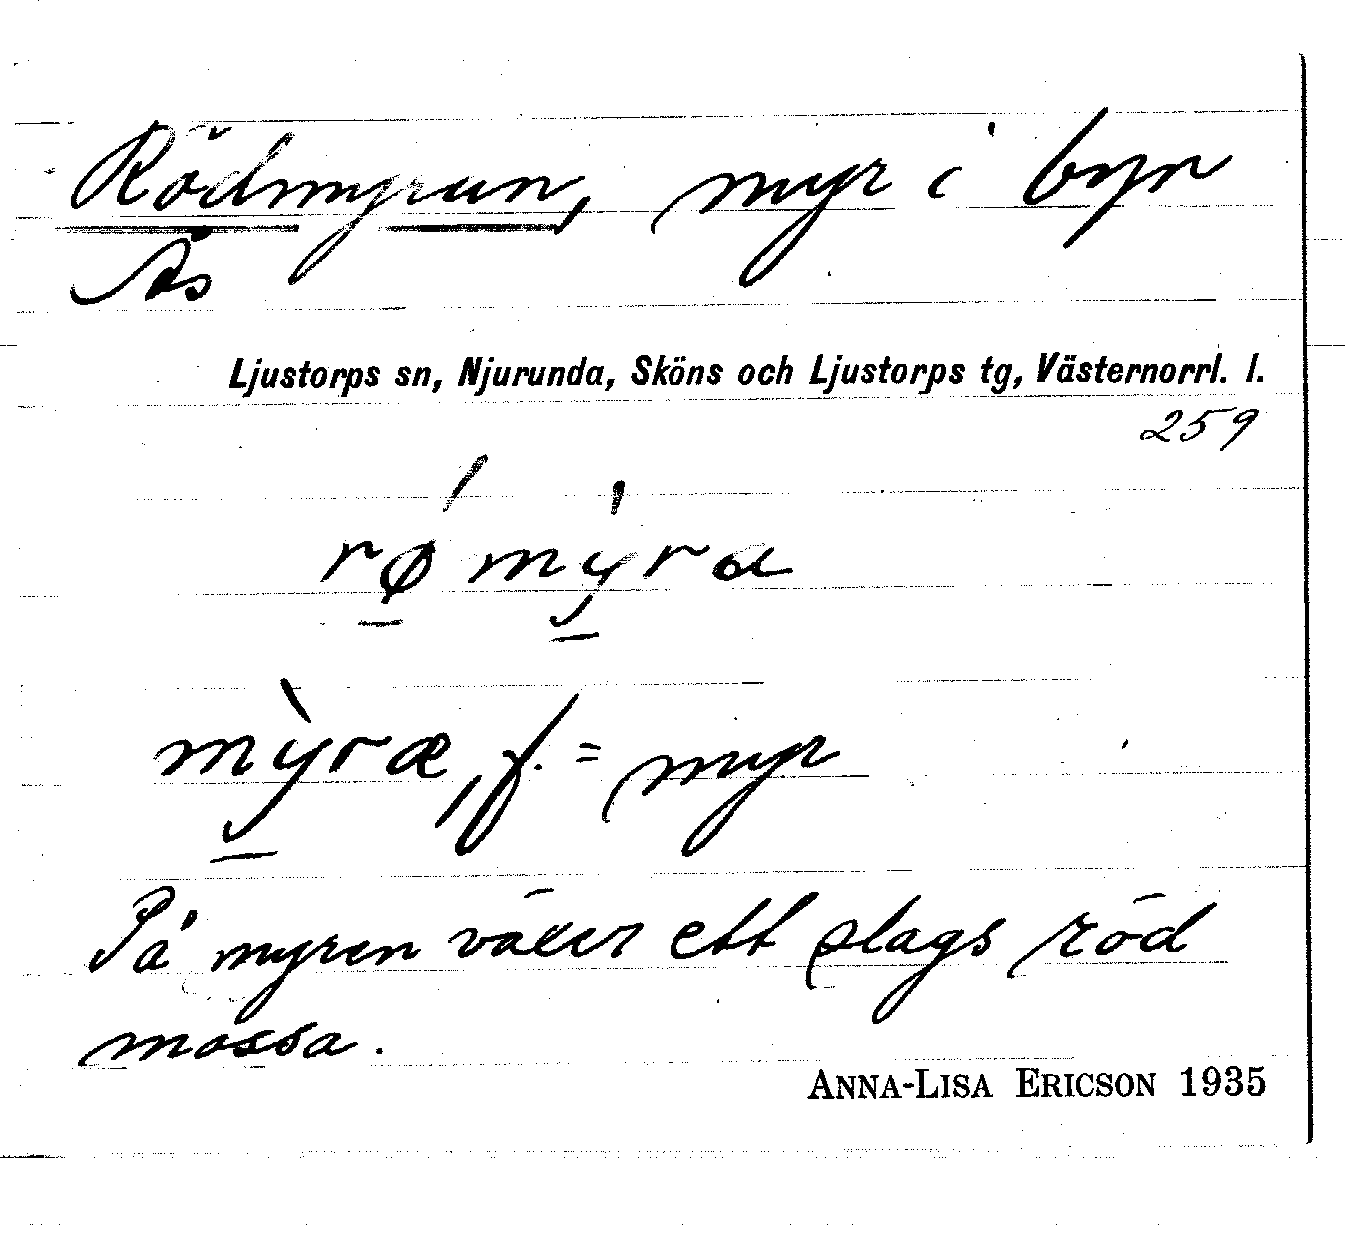 Rödmyran, myr i byn
Ås
Ljustorps sn, Njurunda, Sköns och Ljustorps tg, Västernorrl. l.
259
rǿ̲my̲̍ra
mỳ̲ræ, f. = myr
På myren växer ett slags röd
mossa.
ANNA-LISA ERICSON 1935